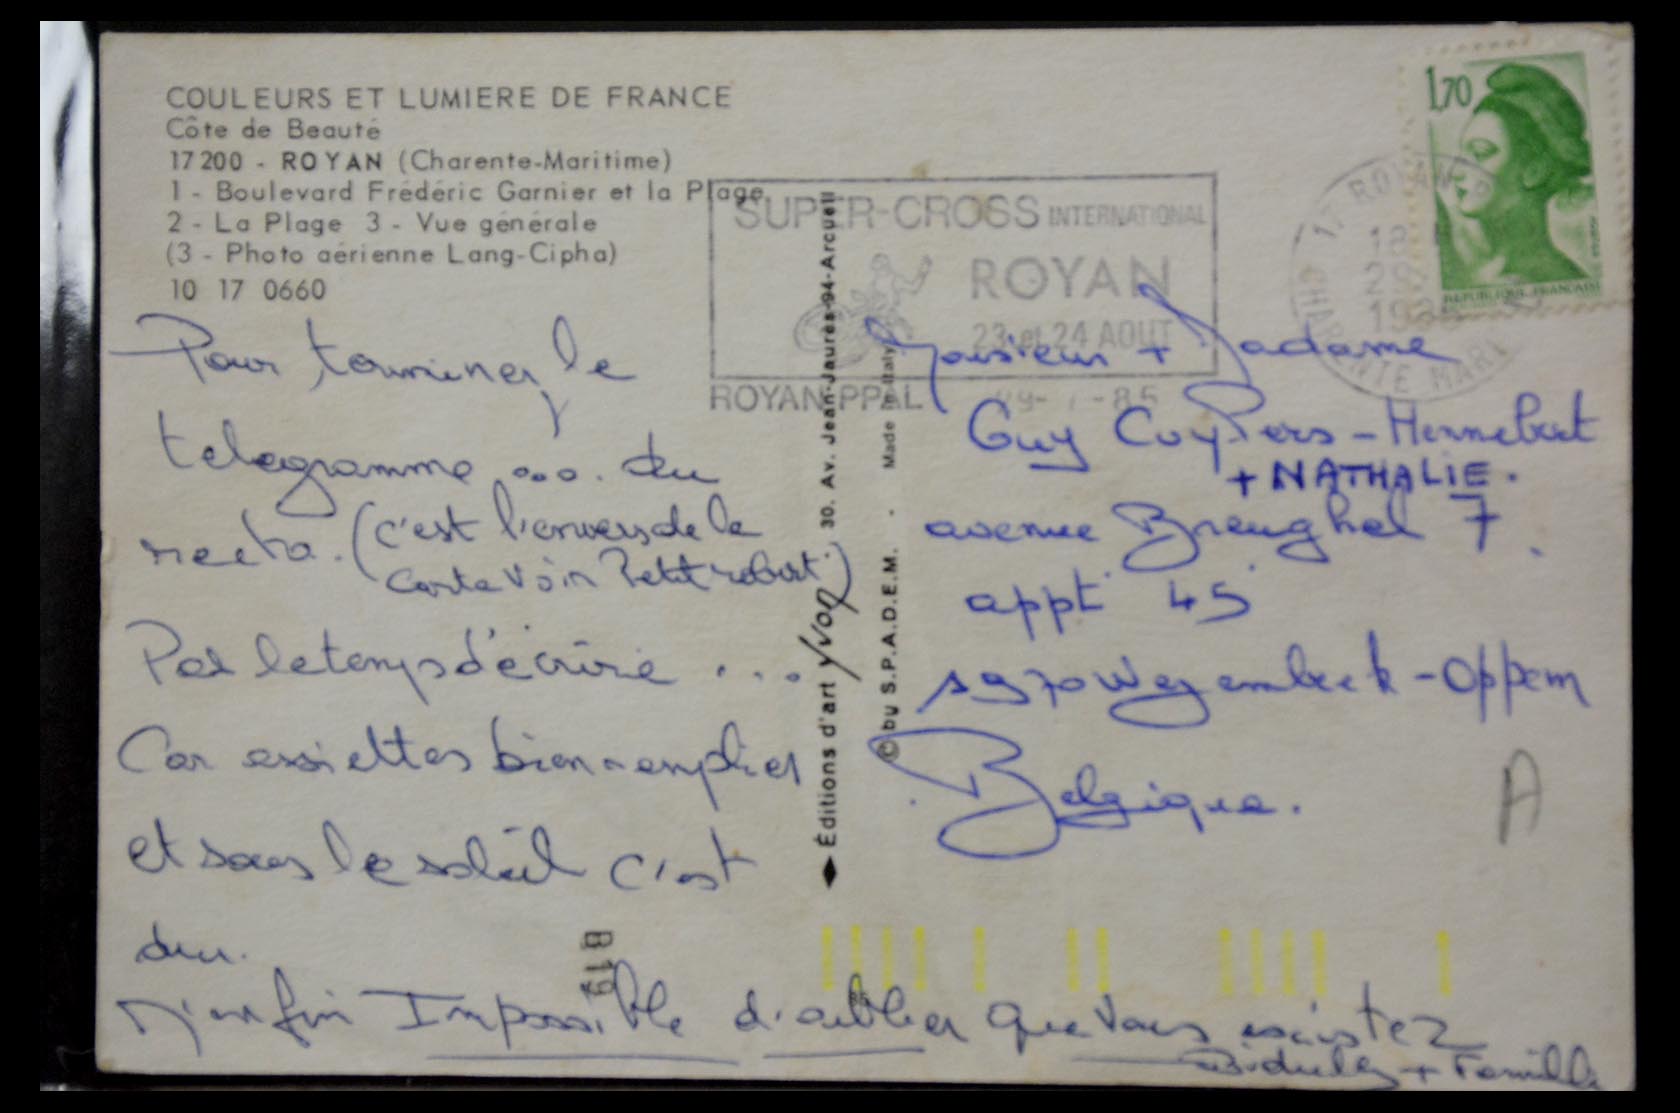 COULEURS ET LUMIERE DE FRANCE
Côte de Beauté
17200 - ROYAN (Charente-Maritime)
1 - Boulevard Frédéric Garnier et la Plage
2 - La Plage 3 - Vue générale
(3 - Photo aérienne Lang-Cipha)
10 17 0660
SUPER-CROSS INTERNATIONAL
ROYAN
23 et 24 AOUT
ROYAN PPAL 29-7-85
1,70
REPUBLIQUE FRANCAISE
17 ROYAN
CHARENTE MARIT
Pour terminer le
telegramme .... du
recto. (c'est l'envers de la
carte voir Petit robert.)
Pas le temps d'écrire ...
Car assiettes bien remplies
et sous le soleil c'est
dur.
M'enfin Impossible d'oublier que vous existez
+ Famille
Éditions d'art Yvon, 30. Av. Jean-Jaurès-94-Arcueil
© by S.P.A.D.E.M. - Made in Italy
Monsieur + Madame
Guy Cuypers - Hennebert
+ NATHALIE.
avenue Breughel 7.
appt 45
1970 Wezembeek - Oppem
Belgique.
A
B 19
85